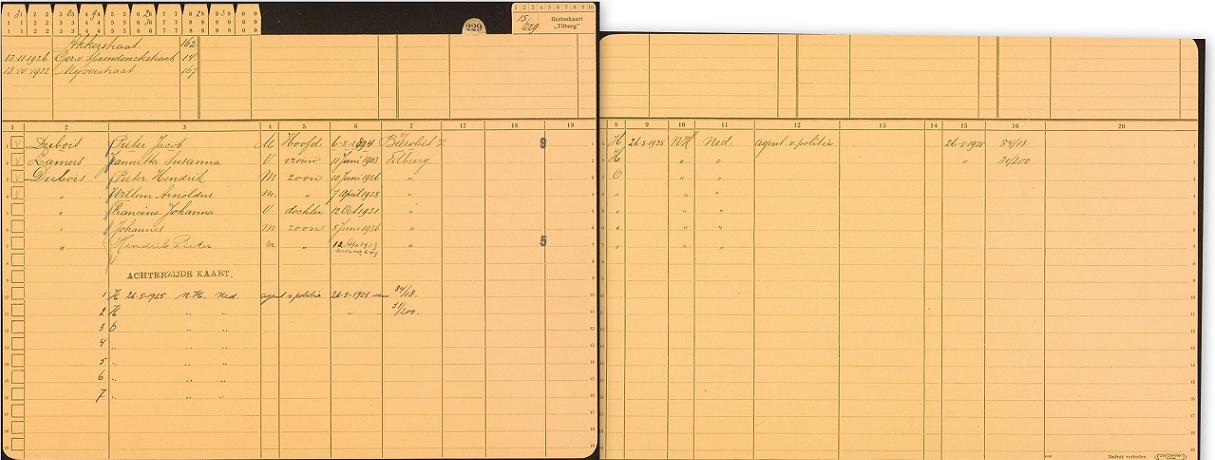 229
15/229
Gezinskaart
„Tilburg"
Akkerstraat 162
13-11-1926 Ger. v. Spaendonckstraat 14
13-10-1932 Meyerstraat 167
1 2 3 4 5 6 7 12 18 19
Dubois Pieter Jacob M Hoofd 6-5-1894 Biervliet Z 9
Lamers Jannetta Susanna V vrouw 11 Juni 1903 Tilburg
Dubois Pieter Hendrik M. zoon 10 Juni 1926 "
" Willem Arnoldus m. " 7 April 1928 "
" Francina Johanna V. dochter 12 Oct 1931 "
" Johannes M zoon 5 Juni 1936 "
" Hendrik Pieter m " 12 "
5
ACHTERZIJDE KAART.
1 H 26-5-1925 N.H. Ned. agent v politie 26-5-1925 84/18.
2 H " " " " 31/200.
3 O " "
4 " " "
5 " " "
6 " " "
7 " " "
8 9 10 11 12 13 14 15 16 20
H 26-5-1925 NH Ned. agent v. politie 26-5-1925 84/18
H " " " 31/200
O " "
" " "
" " "
" " "
" " "
Nadruk verboden